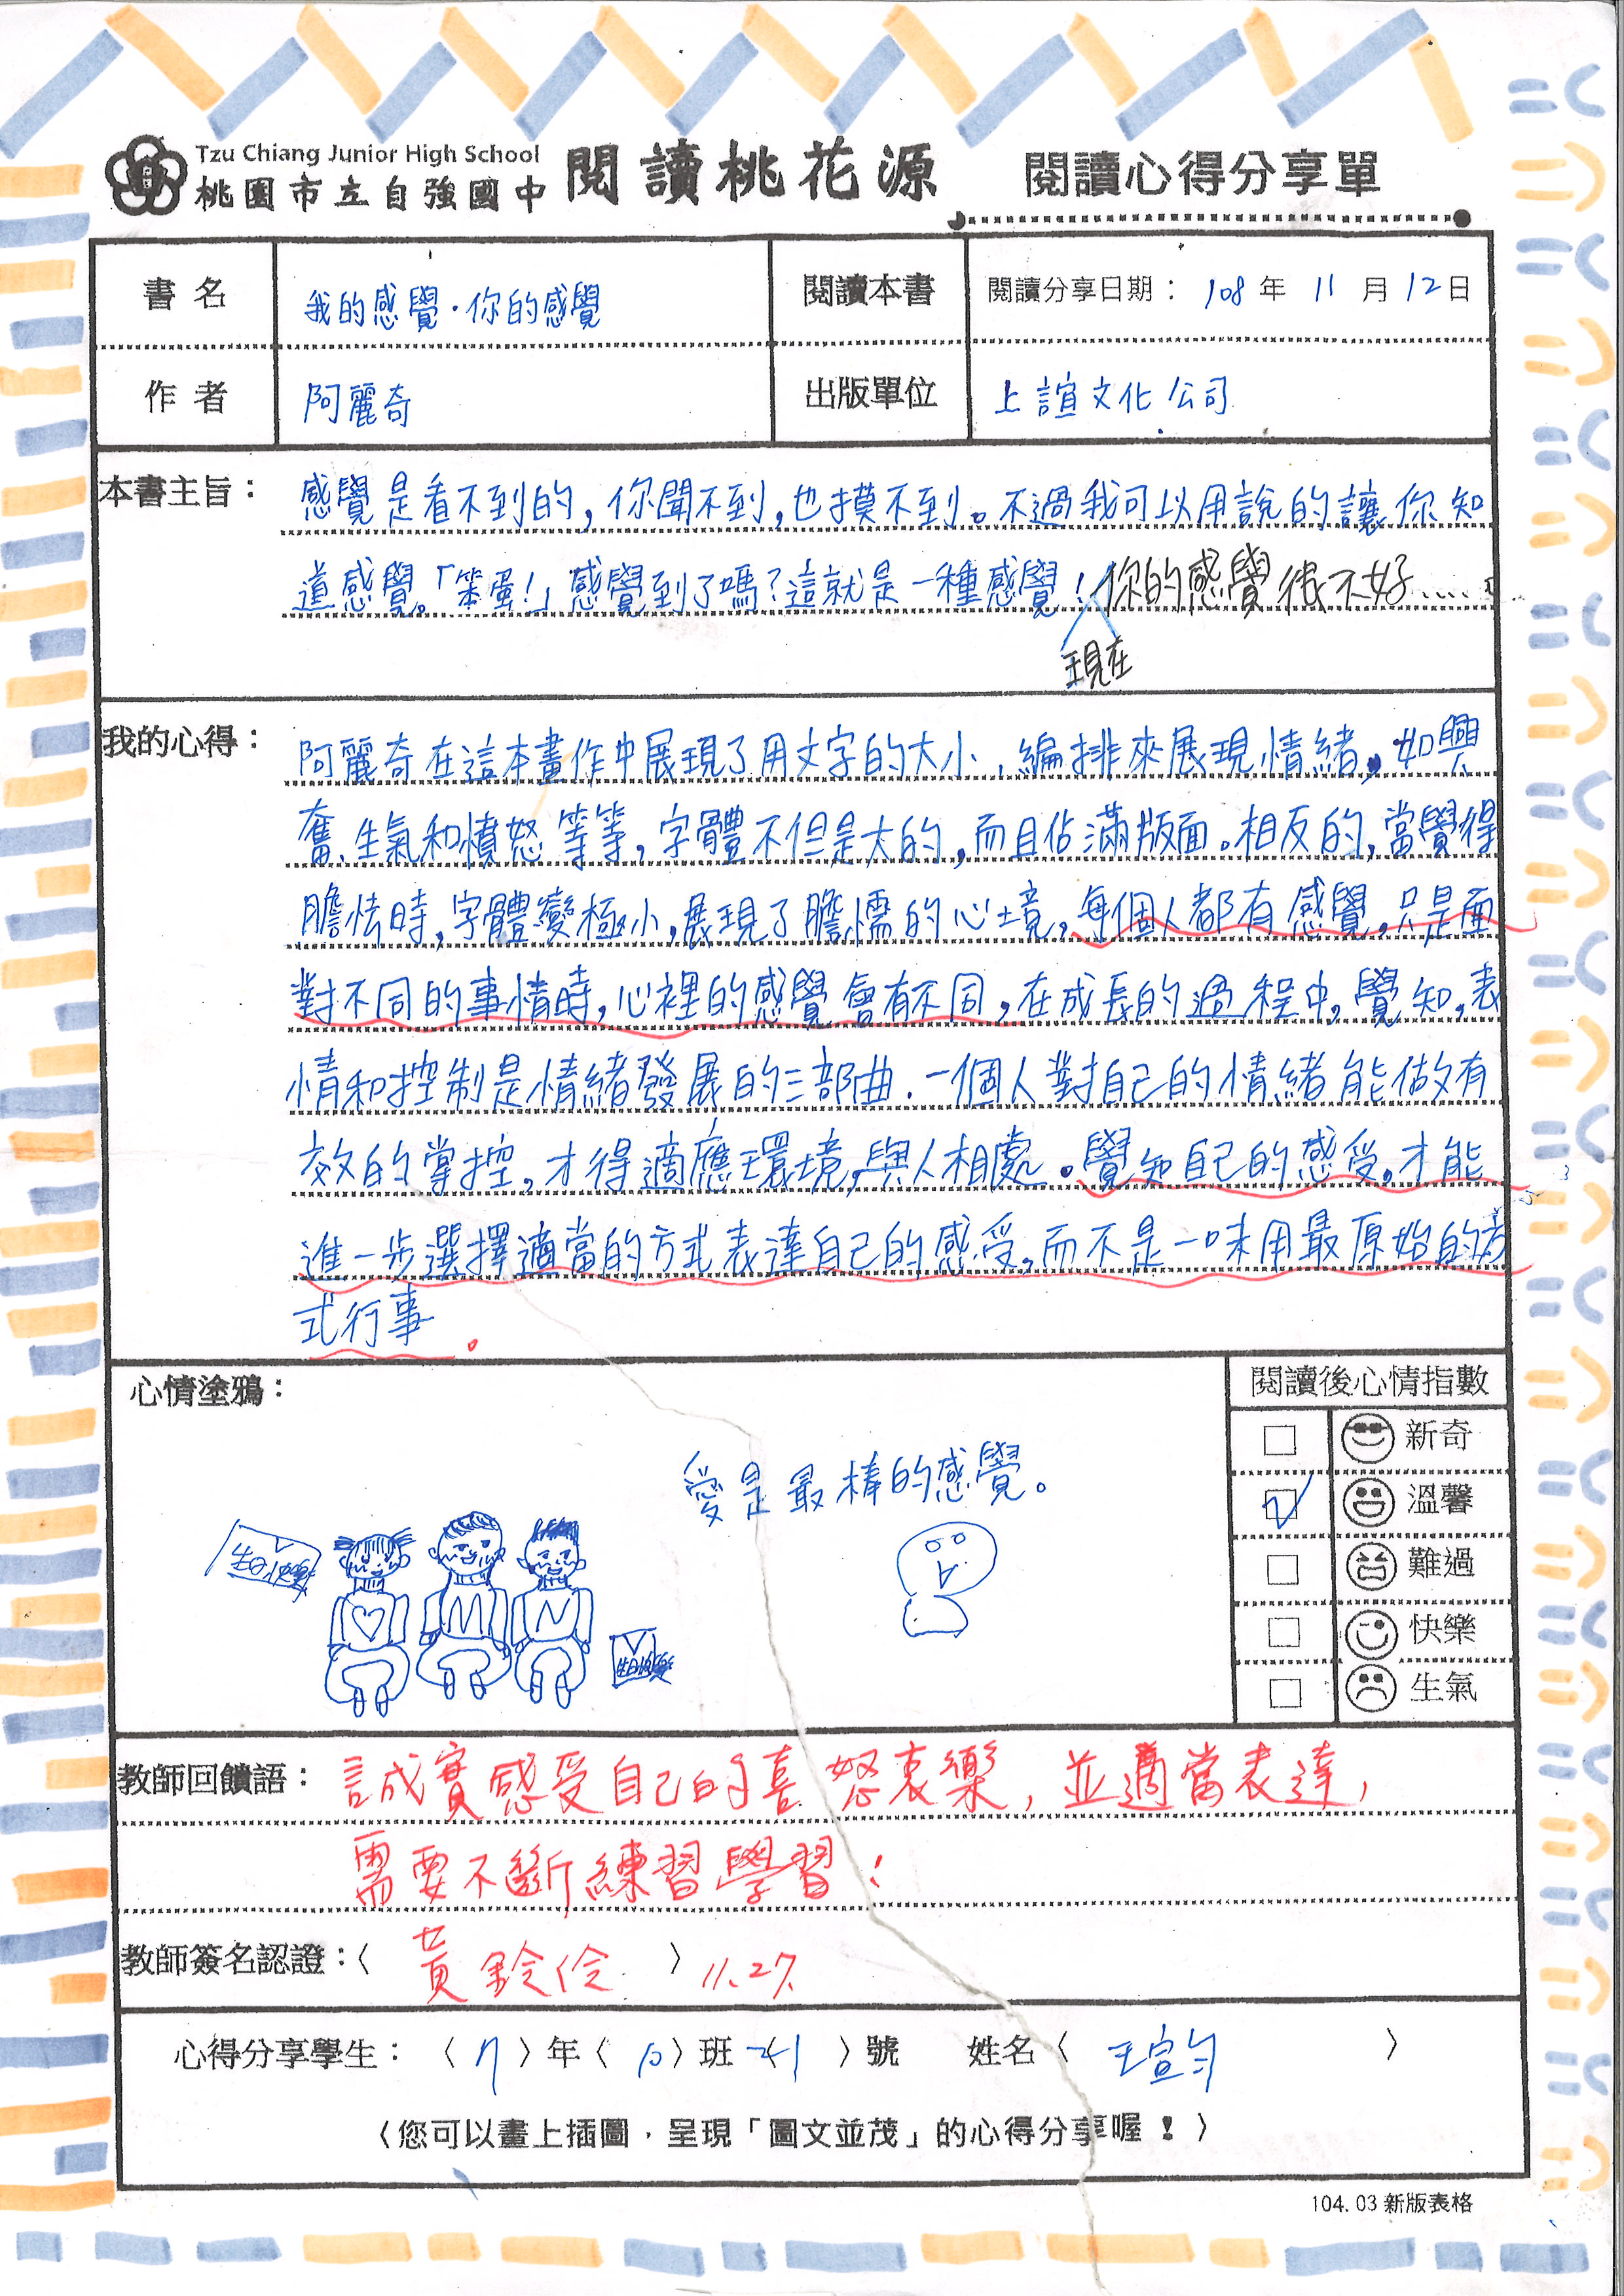 Tzu Chiang Junior High School
桃園市立自強國中 閱讀桃花源 閱讀心得分享單
書名 我的感覺.你的感覺 閱讀本書 閱讀分享日期: 108年 11月 12日
作者 阿麗奇 出版單位 上誼文化公司
本書主旨: 感覺是看不到的,你聞不到,也摸不到。不過我可以用說的讓你知
道感覺。「笨蛋!」感覺到了嗎?這就是一種感覺!你的感覺很不好.....
現在
我的心得: 阿麗奇在這本畫作中展現了用文字的大小、編排來展現情緒,如興
奮、生氣和憤怒等等,字體不但是大的,而且佔滿版面。相反的,當覺得
膽怯時,字體變極小,展現了膽懦的心境,每個人都有感覺,只是面
對不同的事情時,心裡的感覺會有不同,在成長的過程中,覺知,表
情和控制是情緒發展的三部曲.一個人對自己的情緒能做有
效的掌控,才得適應環境,與人相處.覺知自己的感受,才能
進一步選擇適當的方式表達自己的感受,而不是一味用最原始的方
式行事。
心情塗鴉: 閱讀後心情指數
愛是最棒的感覺。
新奇
溫馨
難過
快樂
生氣
生日快樂
生日快樂
教師回饋語: 誠實感受自己的喜怒哀樂,並適當表達,
需要不斷練習學習!
教師簽名認證:〈 黃鈴伶 〉 11.27.
心得分享學生: 〈7〉年〈10〉班〈 〉號 姓名〈 王宣勻 〉
〈您可以畫上插圖,呈現「圖文並茂」的心得分享喔!〉
104.03 新版表格